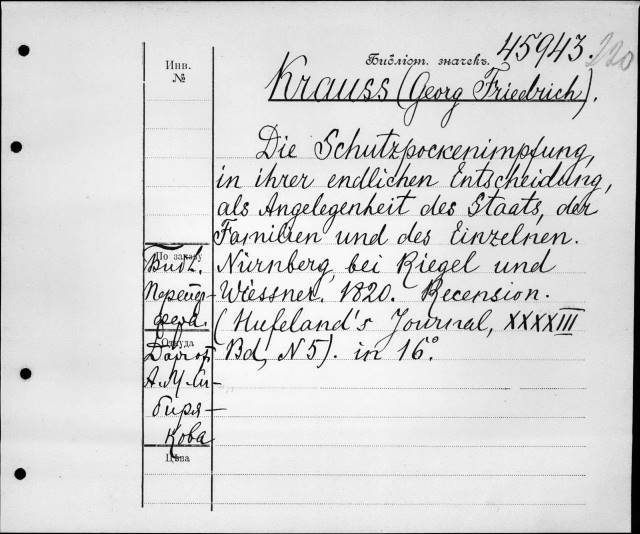 Инв.
№
Библіот. значекъ. 45943. 220
Krauss (Georg Friedrich).
Die Schutzpockenimpfung,
in ihrer endlichen Entscheidung,
als Angelegenheit des Staats, der
Familien und des Einzelnen.
Nürnberg, bei Riegel und
Wiessner. 1820. Recension.
(Hufeland's Journal, XXXXIII
Bd, N 5). in 16°
По заказу
Библ.
Переп-
фера.
Откуда
А. М. Си-
биря-
кова
Цѣна